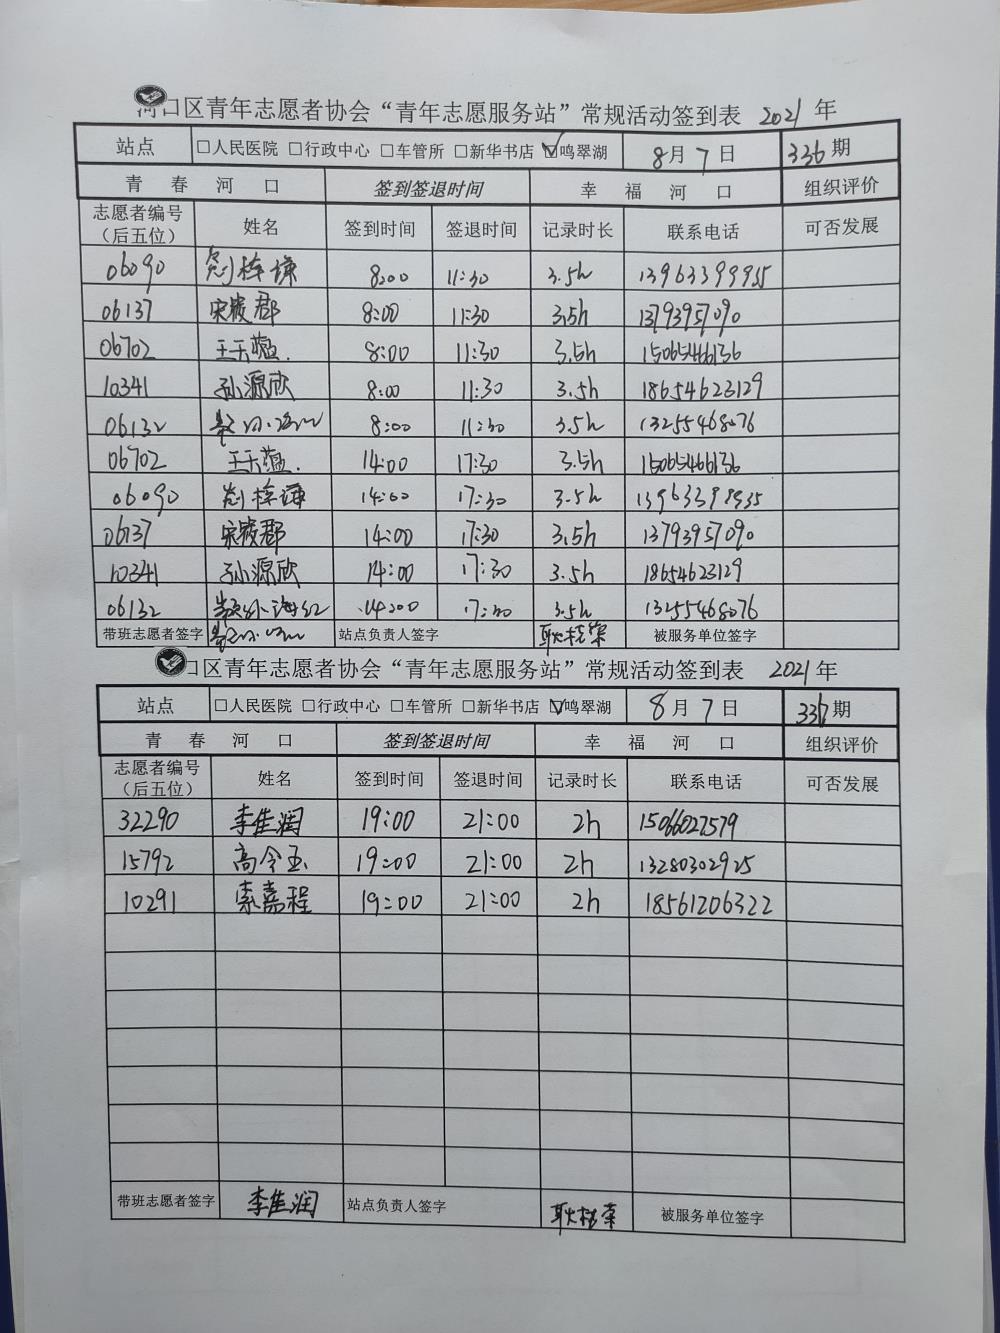 河口区青年志愿者协会“青年志愿服务站”常规活动签到表 2021 年
站点 □人民医院 □行政中心 □车管所 □新华书店 ☑鸣翠湖 8月7日 336期
青春河口 签到签退时间 幸福河口 组织评价
志愿者编号（后五位） 姓名 签到时间 签退时间 记录时长 联系电话 可否发展
06090 8:00 11:30 3.5h
06137 8:00 11:30 3.5h 13793957090
06702 8:00 11:30 3.5h 15065466136
10341 孙源欣 8:00 11:30 3.5h 18654623129
06132 8:00 11:30 3.5h 13255468076
06702 14:00 17:30 3.5h 15065466136
06090 14:00 17:30 3.5h
06137 14:00 17:30 3.5h 13793957090
10341 孙源欣 14:00 17:30 3.5h 18654623129
06132 14:00 17:30 3.5h 13255468076
带班志愿者签字 站点负责人签字 被服务单位签字
口区青年志愿者协会“青年志愿服务站”常规活动签到表 2021年
站点 □人民医院 □行政中心 □车管所 □新华书店 ☑鸣翠湖 8月7日 336期
青春河口 签到签退时间 幸福河口 组织评价
志愿者编号（后五位） 姓名 签到时间 签退时间 记录时长 联系电话 可否发展
32290 李佳润 19:00 21:00 2h 15066027579
15792 高令玉 19:00 21:00 2h 13280302925
10291 索嘉程 19:00 21:00 2h 18561206322
带班志愿者签字 李佳润 站点负责人签字 被服务单位签字